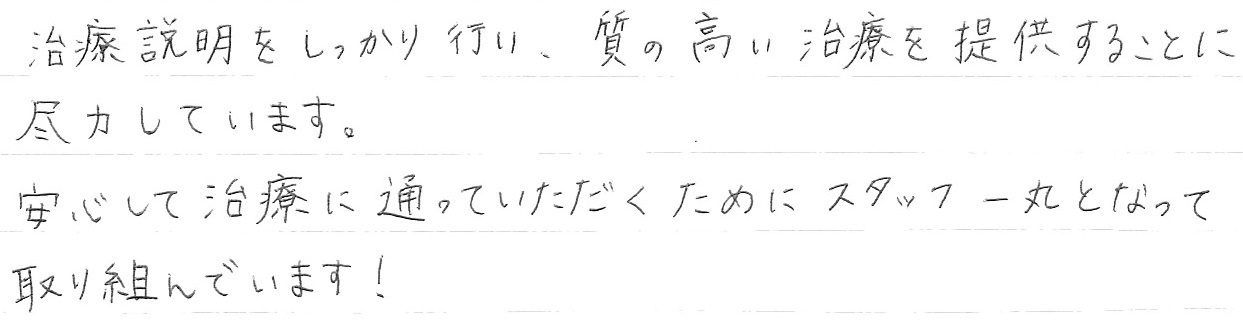 治療説明をしっかり行い、質の高い治療を提供することに
尽力しています。
安心して治療に通っていただくためにスタッフ一丸となって
取り組んでいます!